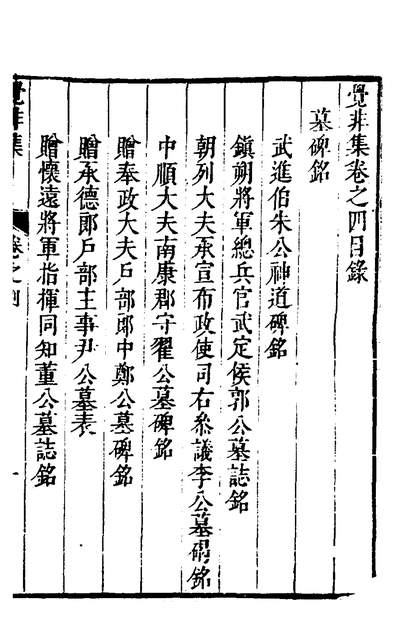 覺非集卷之四目錄
墓碑銘
武進伯朱公神道碑銘
鎮朔將軍總兵官武定侯郭公墓誌銘
朝列大夫承宣布政使司右叅議李公墓碣銘
中順大夫南康郡守翟公墓碑銘
贈奉政大夫戶部郎中鄭公墓碑銘
贈承德郎戶部主事尹公墓表
贈懷遠將軍指揮同知董公墓誌銘
覺非集
卷之四
一